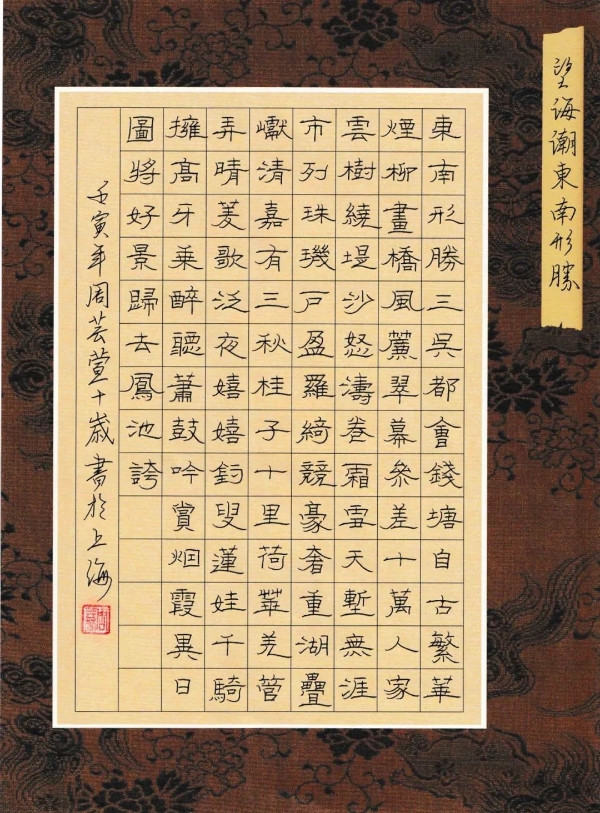 望海潮東南形勝
東南形勝三吳都會錢塘自古繁華
煙柳畫橋風簾翠幕參差十萬人家
雲樹繞堤沙怒濤卷霜雪天塹無涯
市列珠璣戶盈羅綺競豪奢重湖疊
巘清嘉有三秋桂子十里荷華羌管
弄晴菱歌泛夜嬉嬉釣叟蓮娃千騎
擁高牙乘醉聽蕭鼓吟賞烟霞異日
圖將好景歸去鳳池誇
壬寅年周芸萱十歲書於上海